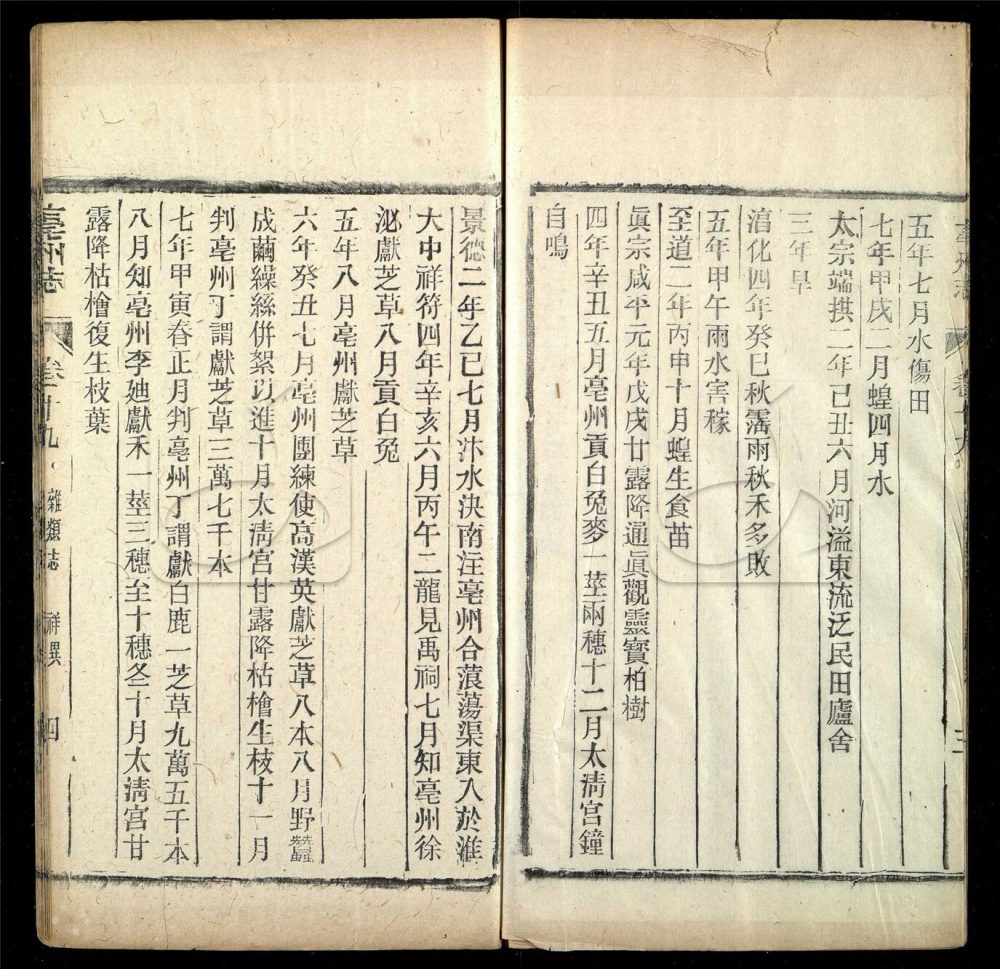 五年七月水傷田
七年甲戌二月蝗四月水
太宗端拱二年己丑六月河溢東流泛民田廬舍
三年旱
淯化四年癸巳秋霱雨秋禾多敗
五年甲午雨水害稼
至道二年丙申十月蝗生食苗
眞宗咸平元年戊戌甘露降通眞觀靈寶柏樹
四年辛丑五月亳州貢白兔麥一莖兩穗十二月太淸宮鐘
自鳴
景德二年乙巳七月汴水決南注亳州合蒗蕩渠東入於淮
大中祥符四年辛亥六月丙午二龍見禹祠七月知亳州徐
泌獻芝草八月貢白兔
五年八月亳州獻芝草
六年癸丑七月亳州團練使高漢英獻芝草八本八月野蠶
成繭繰絲併絮以進十月太淸宮甘露降枯檜生枝十一月
判亳州丁謂獻芝草三萬七千本
七年甲寅春正月判亳州丁謂獻白鹿一芝草九萬五千本
八月知亳州李廸獻禾一莖三穗至十穗冬十月太淸宮甘
露降枯檜復生枝葉
亳州志 卷十九 雜類志 祥異 四